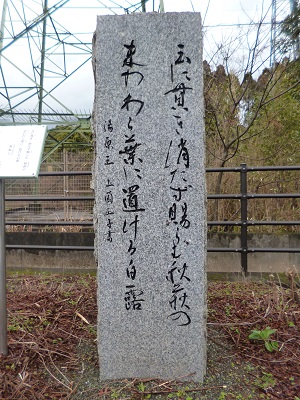 玉に貫き消たず賜らむ秋萩の
末わわら葉に置ける白露
湯原王